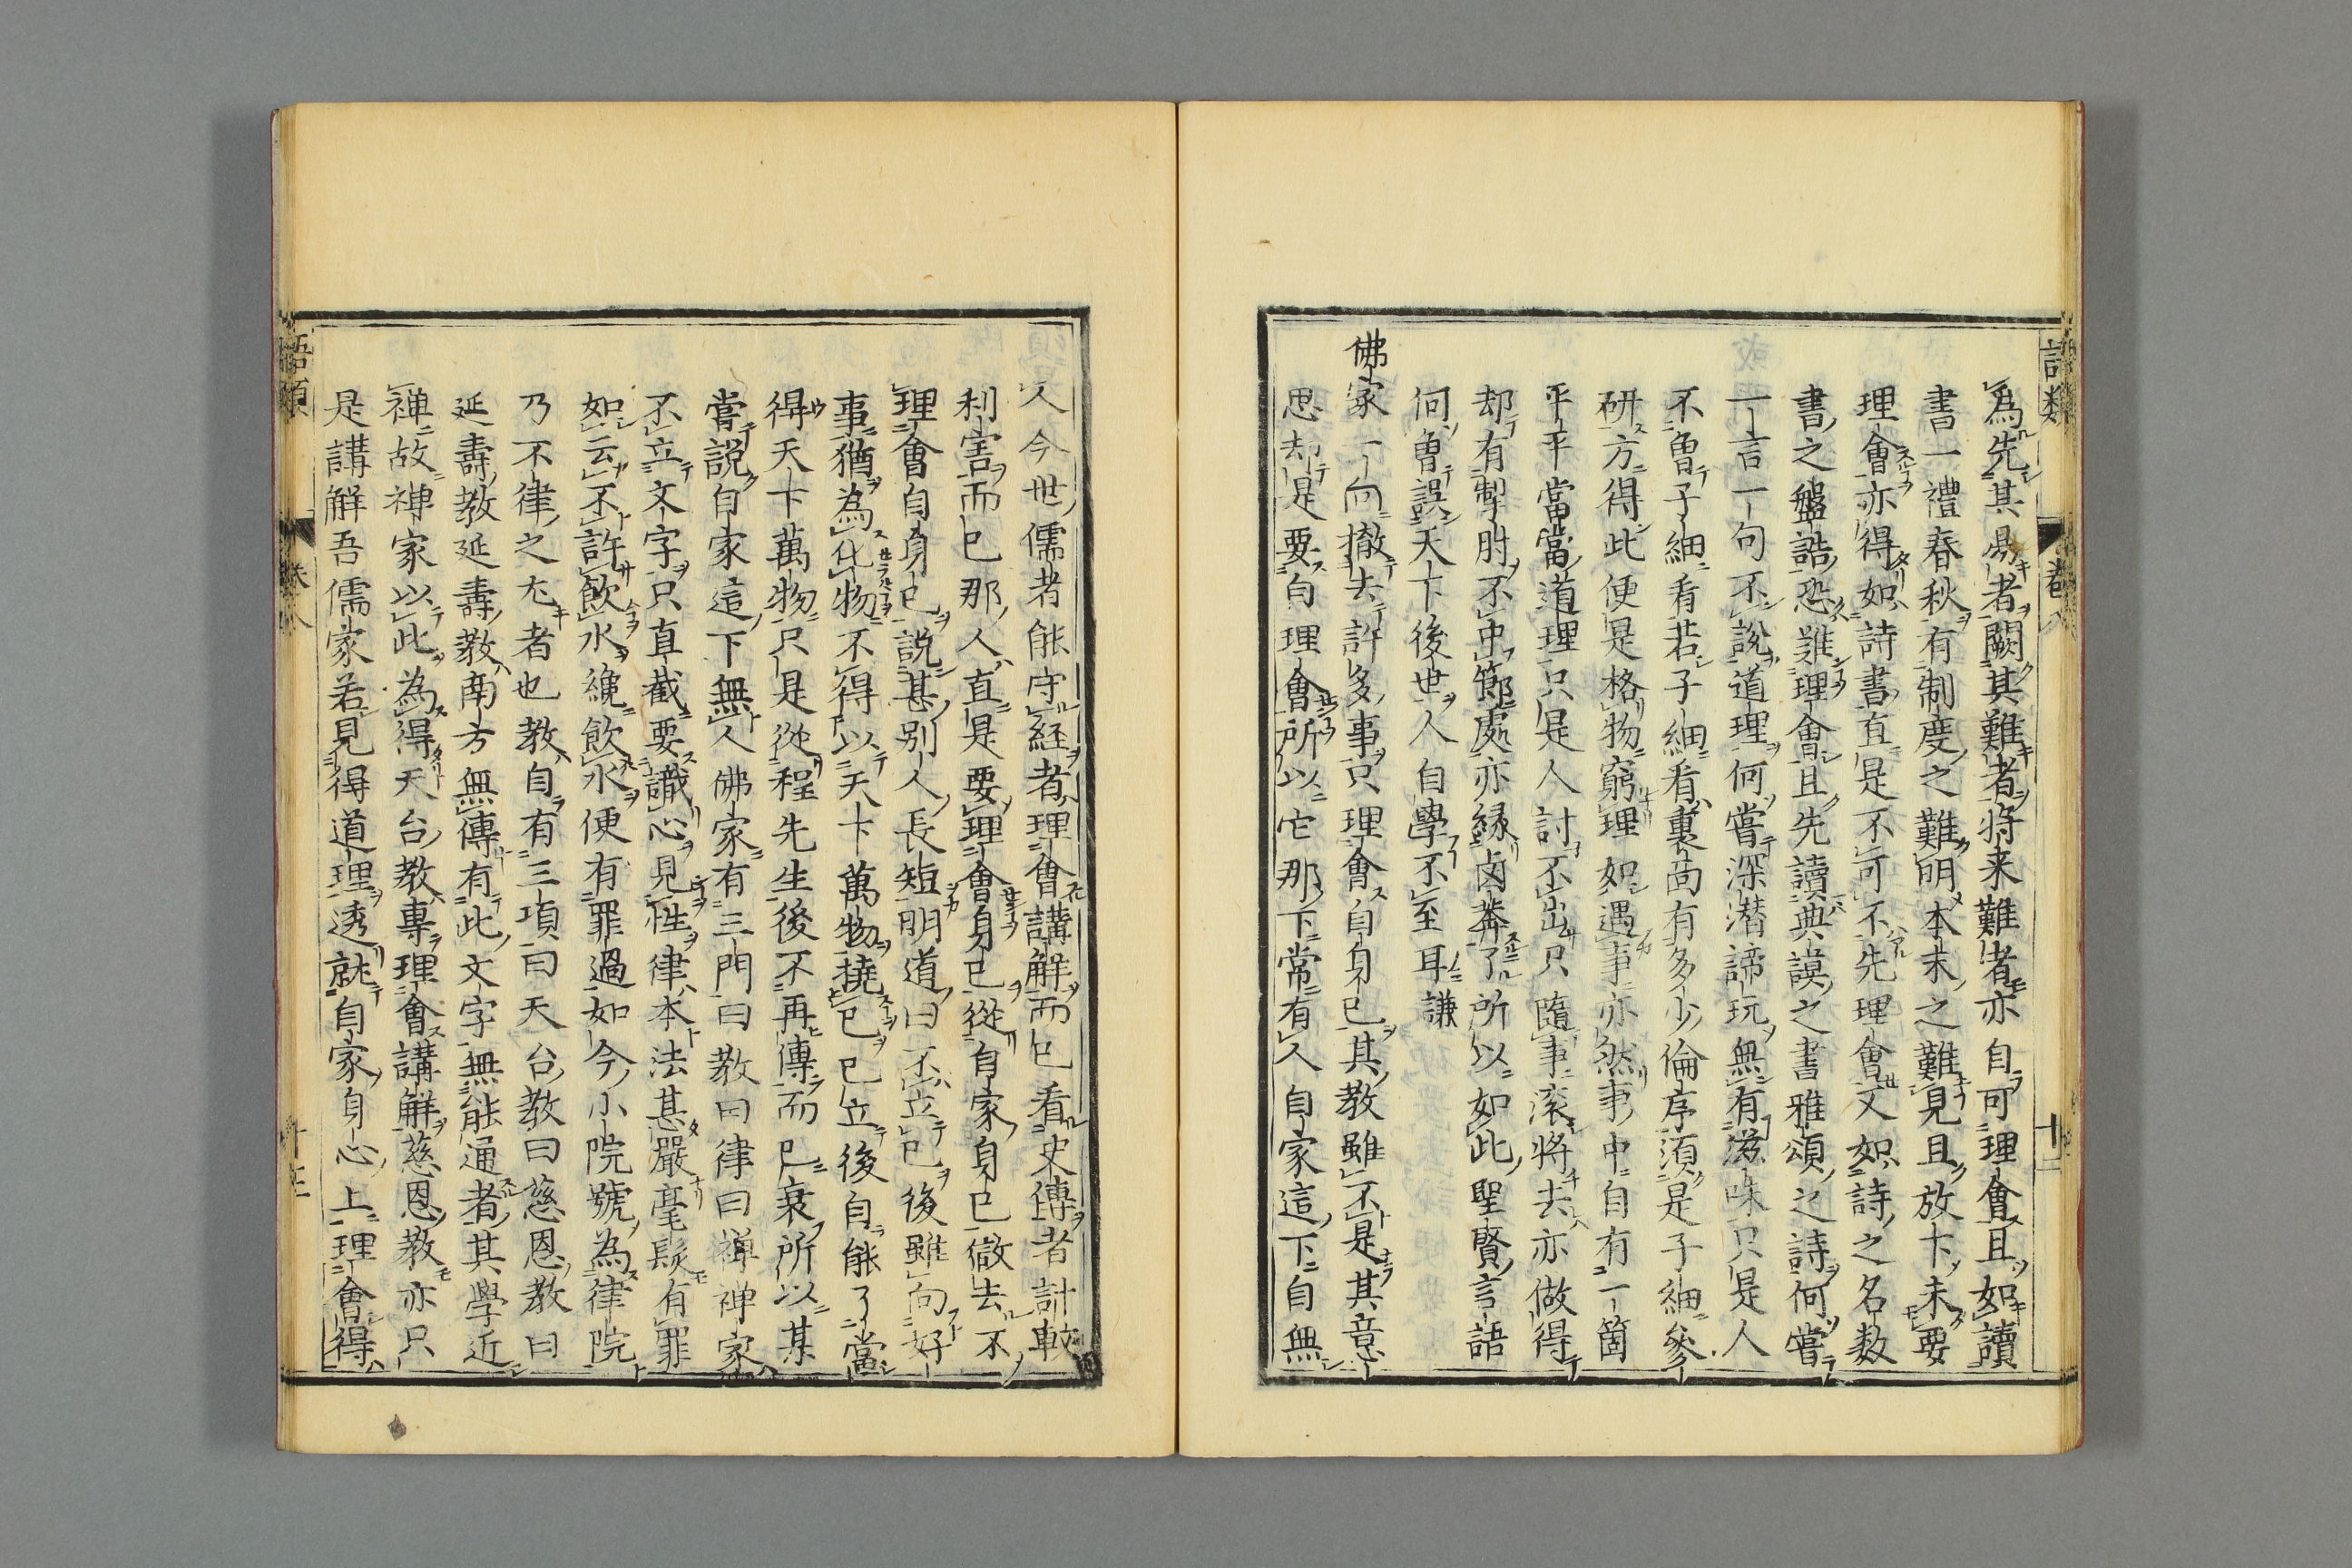 語類 卷八 十二
為先其易者闕其難者将来難者亦自可理會且如讀
書一禮春秋有制度之難明本末之難見且放下未要
理會亦得如詩書直是不可不先理會又如詩之名数
書之盤誥恐難理會且先讀典謨之書雅頌之詩何嘗
一言一句不說道理何嘗深潜諦玩無有滋味只是人
不曽子細看若子細看裏靣有多少倫序須是子細參
研方得此便是格物窮理如遇事亦然事中自有一箇
平平當當道理只是人討不出只隨事滚將去亦做得
却有掣肘不中節處亦縁卤莽了所以如此聖賢言語
何曽誤天下後世人自學不至耳謙
佛家一向撤去許多事只理會自身已其教雖不是其意
思却是要自理會所以它那下常有人自家這下自無
人今世儒者能守経者理會講解而已看史傳者計較
利害而已那人直是要理會身已從自家身已做去不
理會自身已說甚别人長短明道曰不立已後雖向好
事猶為化物不得以天下萬物撓已已立後自能了當
得天下萬物只是從程先生後不再傳而已衰所以某
嘗說自家這下無人佛家有三門曰教曰律曰禅禅家
不立文字只直截要識心見性律本法甚嚴毫髮有罪
如云不許飲水纔飲水便有罪過如今小院號為律院
乃不律之尤者也教自有三項曰天台教曰慈恩教曰
延壽教延壽教南方無傳有此文字無能通者其學近
禅故禅家以此為得天台教專理會講解慈恩教亦只
是講解吾儒家若見得道理透就自家身心上理會得
語類 卷八 十三